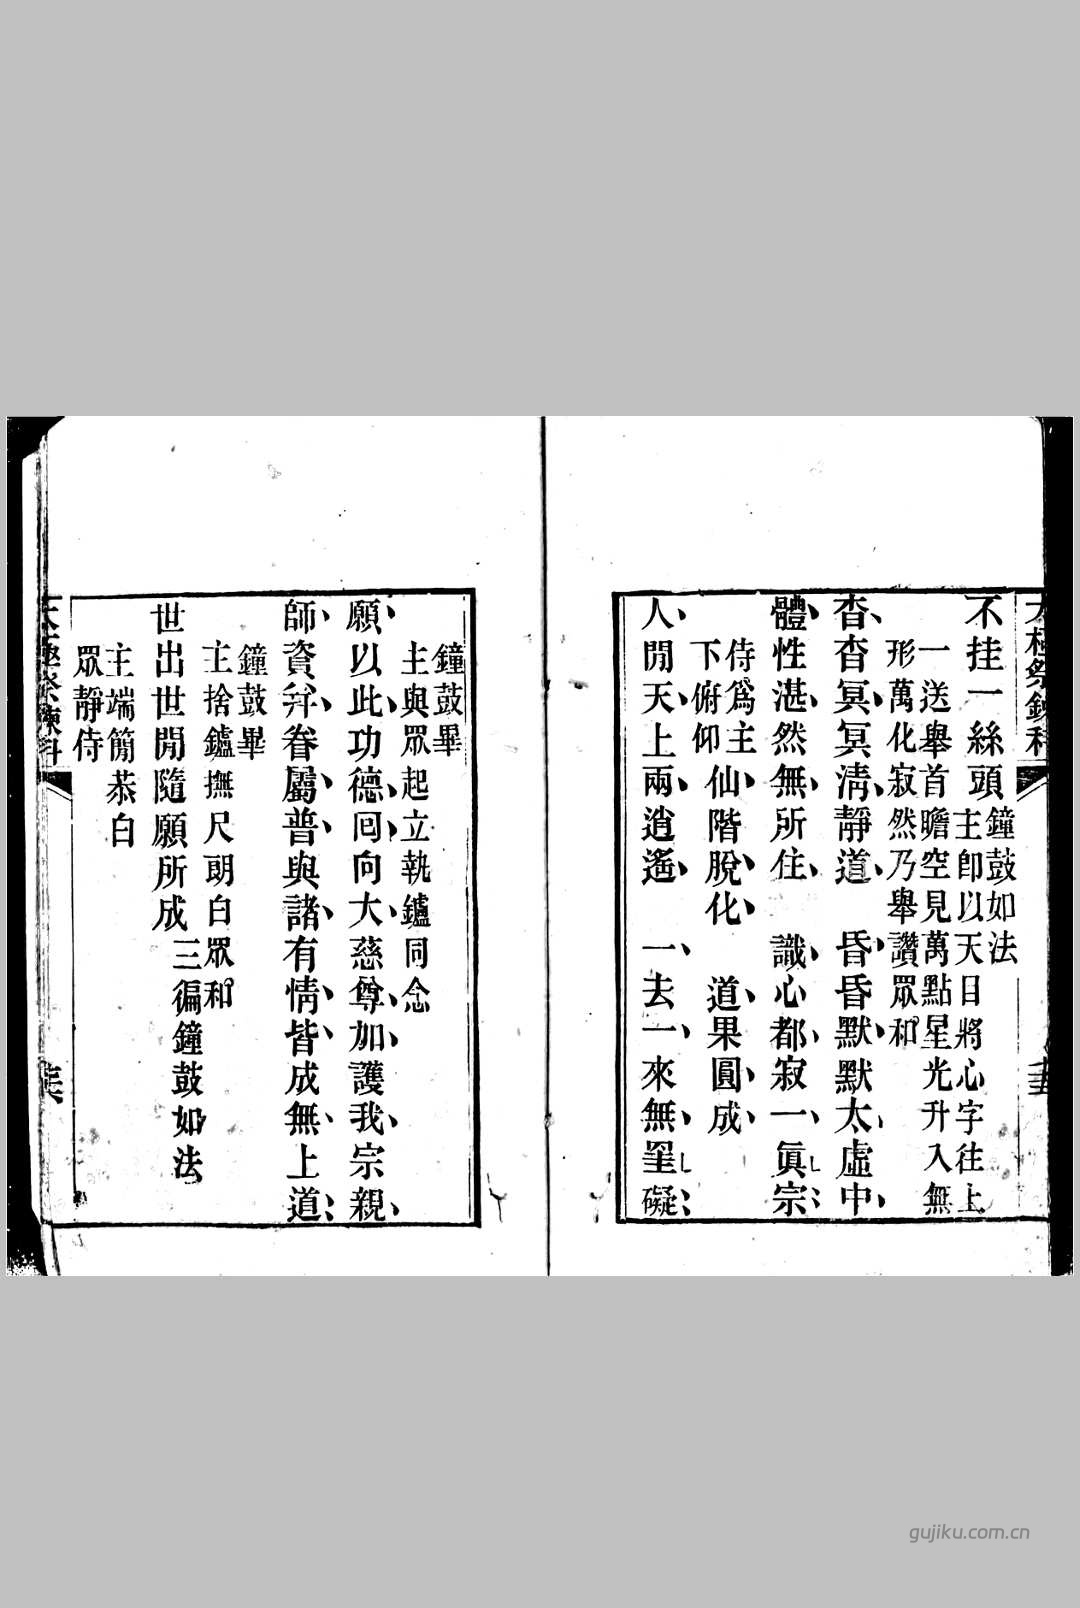 太極祭鍊科
不挂一絲頭
鐘鼓如法
主卽以天目將心字往上
一送舉首瞻空見萬點星光升入無
形萬化寂然乃舉讚眾和
杳杳冥冥淸靜道 昏昏默默太虛中
體性湛然無所住 識心都寂一眞宗
侍爲主
下俯仰
仙階脫化 道果圓成
人閒天上兩逍遙 一去一來無罣礙
鐘鼓畢
主與眾起立執鑪同念
願以此功德囘向大慈尊加護我宗親
師資弁眷屬普與諸有情皆成無上道
鐘鼓畢
主捨鑪撫尺朗白眾和
世出世閒隨願所成
三徧鐘鼓如法
主端簡恭白
眾靜侍
太極祭鍊科
gujiku.com.cn